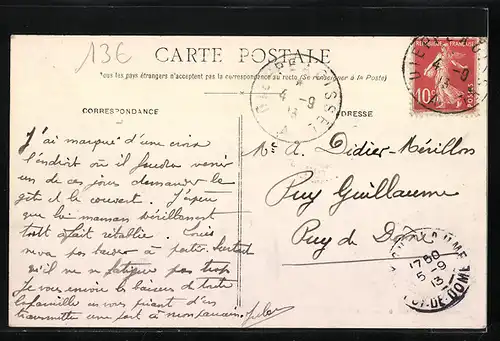 13€
CARTE POSTALE
Tous les pays étrangers n'acceptent pas la correspondance au recto (Se renseigner à la Poste)
CORRESPONDANCE
J'ai marqué d'une croix
l'endroit où il faudra venir
un de ces jours demander le
gîte et le couvert. J'espère
que la maman
tout à fait rétablie. Louis
ne va pas à partir. Surtout
qu'il ne se fatigue pas trop
Je vous envoie les baisers de toute
la famille en vous priant d'en
transmettre une part à mon parrain.
ADRESSE
Mr A. Didier-Mérillon
Puy Guillaume
Puy de Dôme
REPUBLIQUE FRANÇAISE
10c
POSTES
DIEPPE
4 -9
13
4 -9
17 50
5 -9
13
PUY-DE-DOME